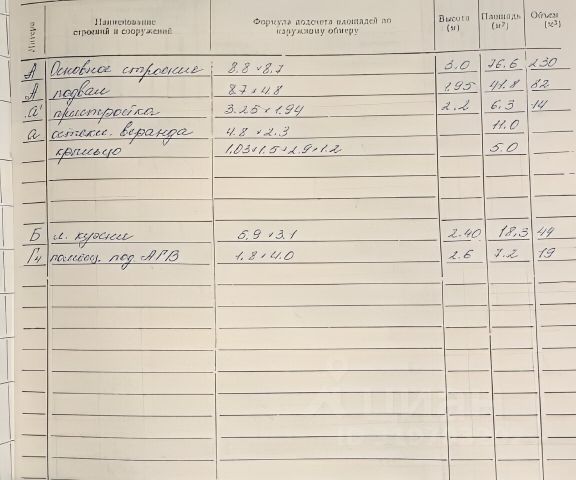 Литера Наименование строений и сооружений Формула подсчета площадей по наружному обмеру Высота (м) Площадь (м²) Объем (м³)
А Основное строение 8.8 × 8.7 3.0 76.6 230
А подвал 8.7 × 4.8 1.95 41.8 82
а' пристройка 3.25 × 1.94 2.2 6.3 14
а остекл. веранда 4.8 × 2.3 11.0
крыльцо 1.03×1.5+2.9×1.2 5.0
Б л. кухни 5.9 × 3.1 2.40 18,3 44
Г4 помещ. под АГВ 1.8 × 4.0 2.6 7.2 19
Циан